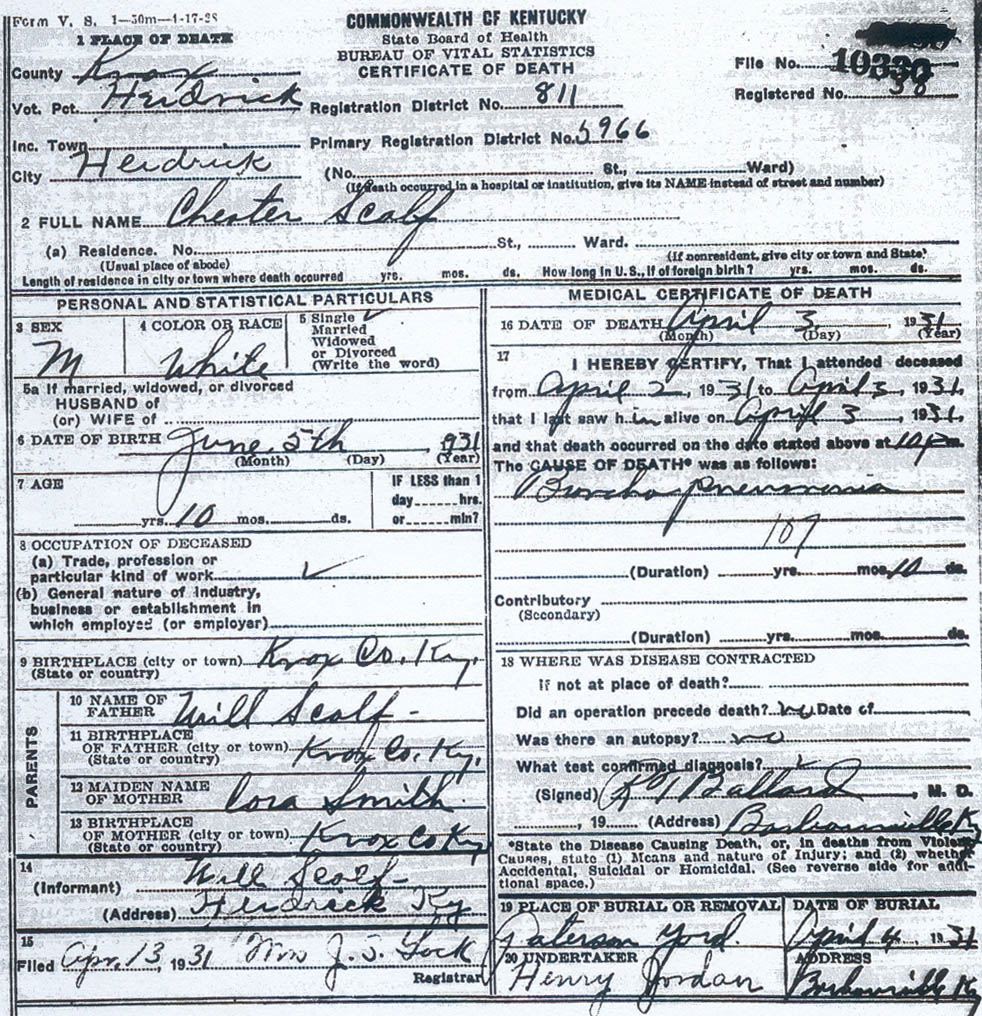 Form V. S. 1-50m-1-17-28
COMMONWEALTH OF KENTUCKY
State Board of Health
BUREAU OF VITAL STATISTICS
CERTIFICATE OF DEATH
File No. 10330
Registered No. 38
1 PLACE OF DEATH
County Knox
Vot. Pct. Heidrick Registration District No. 811
Inc. Town Primary Registration District No. 5966
City Heidrick (No. St., Ward)
(If death occurred in a hospital or institution, give its NAME instead of street and number)
2 FULL NAME Chester Scalf
(a) Residence. No. St., Ward.
(Usual place of abode) (If nonresident, give city or town and State)
Length of residence in city or town where death occurred yrs. mos. ds. How long in U. S., if of foreign birth? yrs. mos. ds.
PERSONAL AND STATISTICAL PARTICULARS
3 SEX
M
4 COLOR OR RACE
White
5 Single ✓
Married
Widowed
or Divorced
(Write the word)
5a If married, widowed, or divorced
HUSBAND of
(or) WIFE of
6 DATE OF BIRTH June 5th, 931
(Month) (Day) (Year)
7 AGE
yrs. 10 mos. ds.
IF LESS than 1
day hrs.
or min?
8 OCCUPATION OF DECEASED
(a) Trade, profession or
particular kind of work ✓
(b) General nature of industry,
business or establishment in
which employed (or employer)
9 BIRTHPLACE (city or town) Knox Co. Ky.
(State or country)
PARENTS
10 NAME OF
FATHER Will Scalf
11 BIRTHPLACE
OF FATHER (city or town) Knox Co. Ky.
(State or country)
12 MAIDEN NAME
OF MOTHER Cora Smith
13 BIRTHPLACE
OF MOTHER (city or town) Knox Co Ky
(State or country)
14
(Informant) Will Scalf
(Address) Heidrick Ky
15
Filed Apr. 13, 1931 Mrs J. S. Lock
Registrar
MEDICAL CERTIFICATE OF DEATH
16 DATE OF DEATH April 3 1931
(Month) (Day) (Year)
17
I HEREBY CERTIFY, That I attended deceased
from April 2, 1931 to April 3, 1931,
that I last saw h im alive on April 3, 1931,
and that death occurred on the date stated above at 10 P m.
The CAUSE OF DEATH* was as follows:
Broncho pneumonia
107
(Duration) yrs. mos. 10 ds.
Contributory
(Secondary)
(Duration) yrs. mos. ds.
18 WHERE WAS DISEASE CONTRACTED
if not at place of death?
Did an operation precede death? no Date of
Was there an autopsy? no
What test confirmed diagnosis? ✓
(Signed) Ballard, M. D.
, 19 (Address) Barbourville Ky
*State the Disease Causing Death, or, in deaths from Violent
Causes, state (1) Means and nature of Injury; and (2) whether
Accidental, Suicidal or Homicidal. (See reverse side for addi-
tional space.)
19 PLACE OF BURIAL OR REMOVAL
Paterson yord.
DATE OF BURIAL
April 4, 1931
20 UNDERTAKER
Henry Jordan
ADDRESS
Barbourville Ky